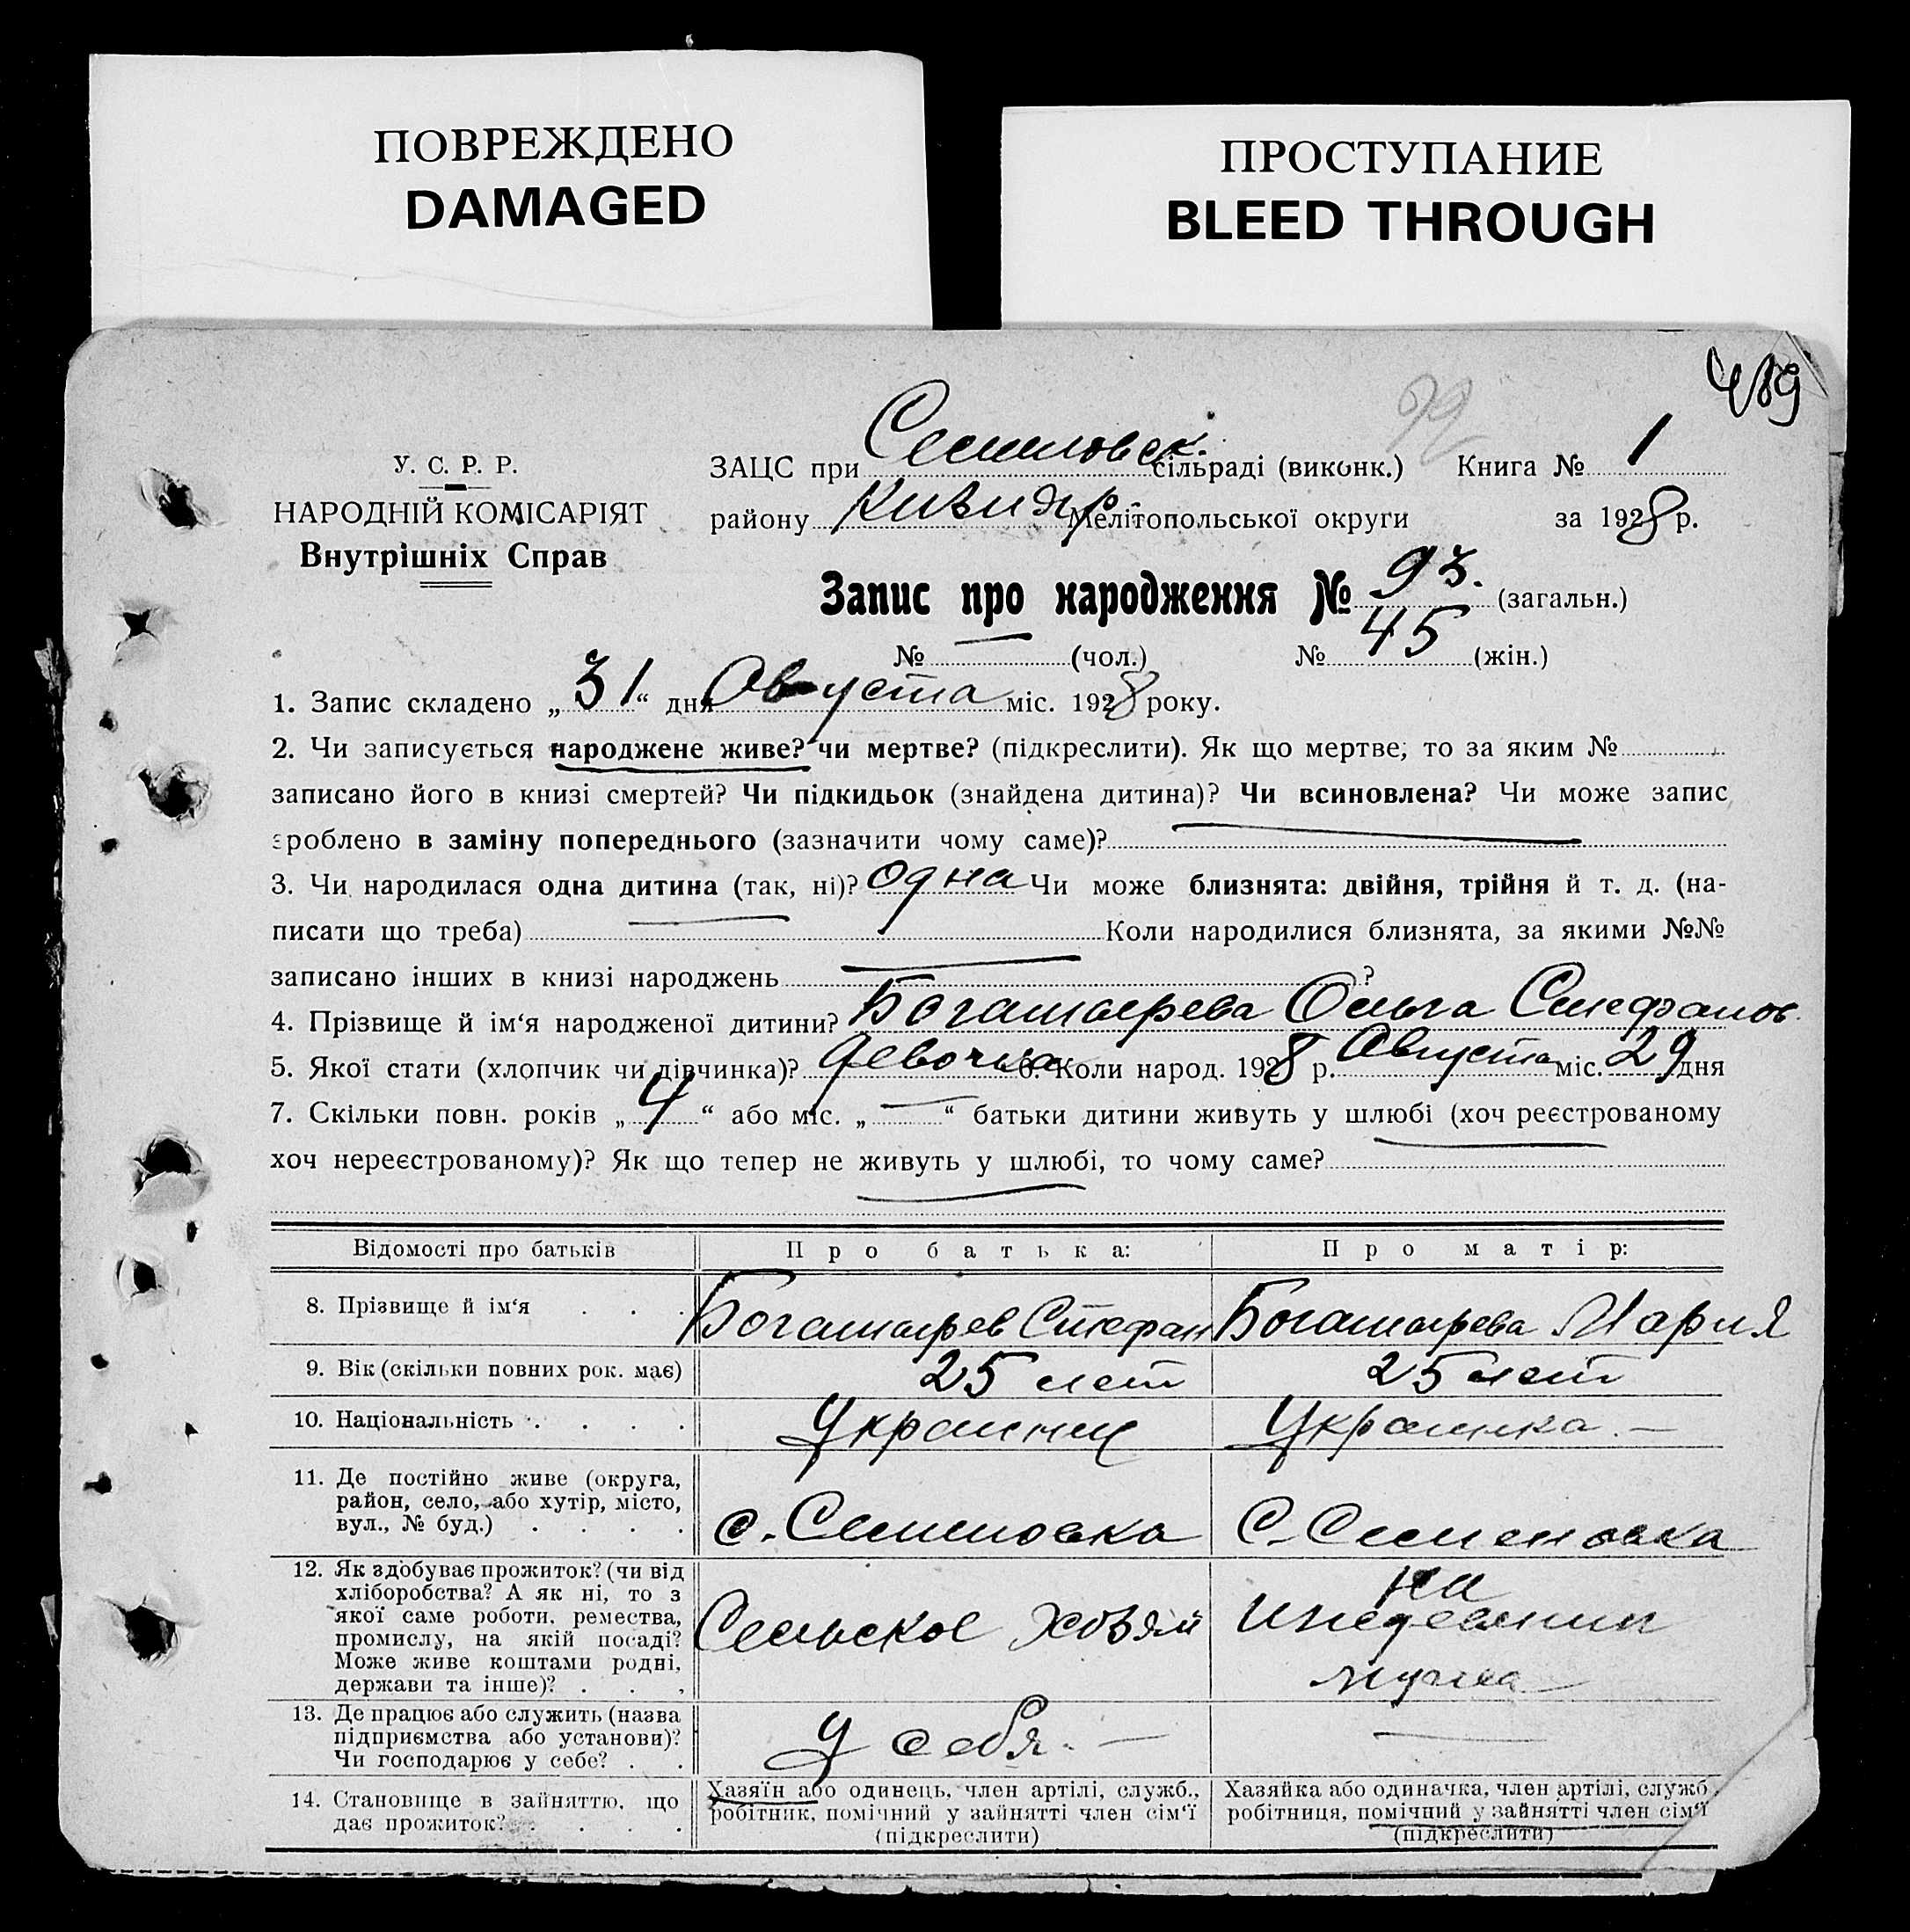 ПОВРЕЖДЕНО
DAMAGED
ПРОСТУПАНИЕ
BLEED THROUGH
489
У. С. Р. Р.
НАРОДНІЙ КОМІСАРІЯТ
Внутрішніх Справ
ЗАЦС при Семеновск. сільраді (виконк.) Книга № 1
району Мелітопольської округи за 1928 р.
Запис про народження № 93. (загальн.)
№ — (чол.) № 45 (жін.)
1. Запис складено „31“ дня Августа міс. 1928 року.
2. Чи записується народжене живе? чи мертве? (підкреслити). Як що мертве, то за яким №
записано його в книзі смертей? Чи підкидьок (знайдена дитина)? Чи всиновлена? Чи може запис
зроблено в заміну попереднього (зазначити чому саме)?
3. Чи народилася одна дитина (так, ні)? одна Чи може близнята: двійня, трійня й т. д. (на-
писати що треба) Коли народилися близнята, за якими №№
записано інших в книзі народжень ?
4. Прізвище й ім‘я народженої дитини? Богатырева Ольга Стефанов.
5. Якої стати (хлопчик чи дівчинка)? девочка 6. Коли народ. 1928 р. Августа міс. 29 дня
7. Скільки повн. років „4“ або міс. „—“ батьки дитини живуть у шлюбі (хоч реєстрованому
хоч нереєстрованому)? Як що тепер не живуть у шлюбі, то чому саме?
Відомості про батьків Про батька: Про матір:
8. Прізвище й ім‘я . . . Богатырев Стефан Богатырева Мария
9. Вік (скільки повних рок. має) 25 лет 25 лет
10. Національність . . . . Украинец Украинка. —
11. Де постійно живе (округа,
район, село, або хутір, місто,
вул., № буд.) . . . . с. Семеновка С. Семеновка
12. Як здобуває прожиток? (чи від
хліборобства? А як ні, то з
якої саме роботи, ремества,
промислу, на якій посаді?
Може живе коштами родні,
держави та інше)? . . . Сельское хозяй на иждевении мужа
13. Де працює або служить (назва
підприємства або установи)?
Чи господарює у себе? . . У себя. — —
14. Становище в зайняттю, що
дає прожиток? . . . .
Хазяїн або одинець, член артілі, служб.,
робітник, помічний у зайнятті член сім‘ї
(підкреслити)
Хазяйка або одиначка, член артілі, служб.
робітниця, помічний у зайнятті член сім‘ї
(підкреслити)